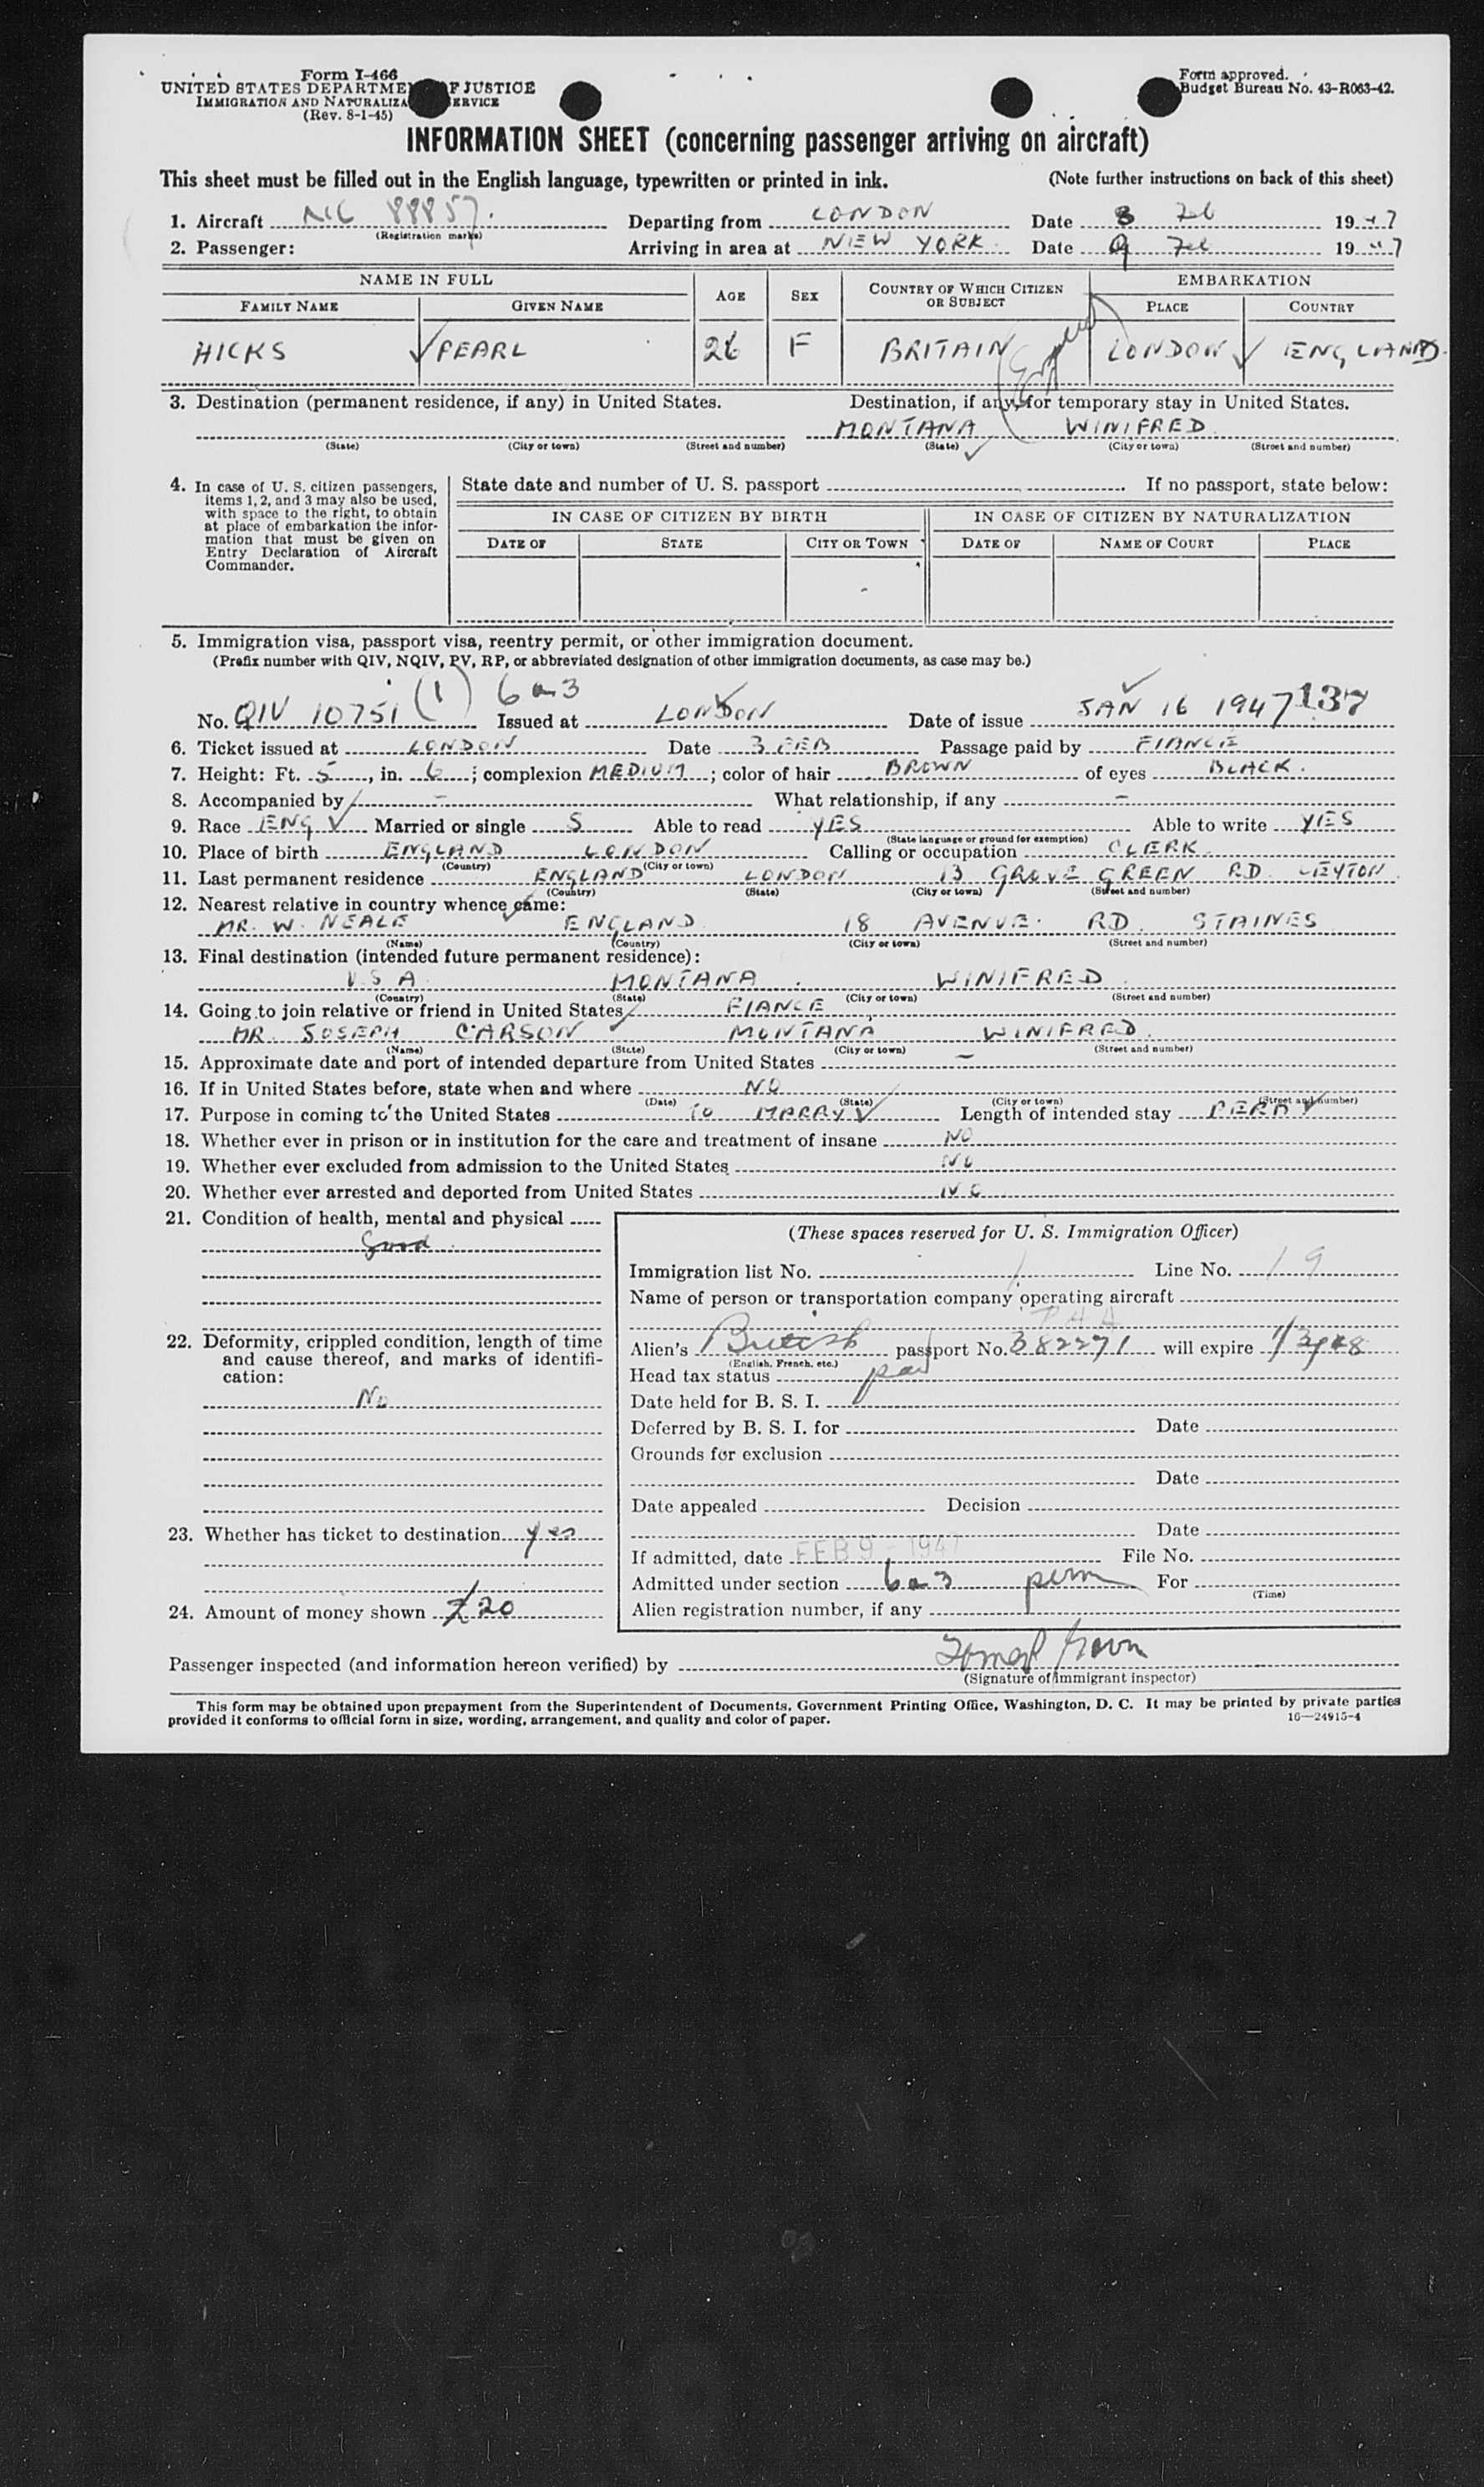 Form I-466
UNITED STATES DEPARTME F JUSTICE
IMMIGRATION AND NATURALIZA ERVICE
(Rev. 8-1-45)
Form approved.
Budget Bureau No. 43-R063-42.
INFORMATION SHEET (concerning passenger arriving on aircraft)
This sheet must be filled out in the English language, typewritten or printed in ink. (Note further instructions on back of this sheet)
1. Aircraft NC 88857. Departing from LONDON Date 8 Feb 1947
(Registration marks)
2. Passenger: Arriving in area at NEW YORK. Date 9 Feb 1947
NAME IN FULL AGE SEX COUNTRY OF WHICH CITIZEN OR SUBJECT EMBARKATION
FAMILY NAME GIVEN NAME PLACE COUNTRY
HICKS PEARL 26 F BRITAIN LONDON ENGLAND.
3. Destination (permanent residence, if any) in United States. Destination, if any, for temporary stay in United States.
MONTANA WINIFRED.
(State) (City or town) (Street and number) (State) (City or town) (Street and number)
4. In case of U. S. citizen passengers, items 1, 2, and 3 may also be used, with space to the right, to obtain at place of embarkation the information that must be given on Entry Declaration of Aircraft Commander.
State date and number of U. S. passport If no passport, state below:
IN CASE OF CITIZEN BY BIRTH IN CASE OF CITIZEN BY NATURALIZATION
DATE OF STATE CITY OR TOWN DATE OF NAME OF COURT PLACE
5. Immigration visa, passport visa, reentry permit, or other immigration document.
(Prefix number with QIV, NQIV, PV, RP, or abbreviated designation of other immigration documents, as case may be.)
No. QIV 10751 (1) 6a3 Issued at LONDON Date of issue JAN 16 1947 137
6. Ticket issued at LONDON Date 3 FEB Passage paid by FIANCE
7. Height: Ft. 5, in. 6; complexion MEDIUM; color of hair BROWN of eyes BLACK.
8. Accompanied by - What relationship, if any -
9. Race ENG Married or single S Able to read YES Able to write YES
(State language or ground for exemption)
10. Place of birth ENGLAND LONDON Calling or occupation CLERK.
(Country) (City or town)
11. Last permanent residence ENGLAND LONDON 13 GROVE GREEN RD LEYTON.
(Country) (State) (City or town) (Street and number)
12. Nearest relative in country whence came:
MR. W. NEALE ENGLAND 18 AVENUE RD STAINES
(Name) (Country) (City or town) (Street and number)
13. Final destination (intended future permanent residence):
U S A. MONTANA. WINIFRED
(Country) (State) (City or town) (Street and number)
14. Going to join relative or friend in United States FIANCE
MR. JOSEPH CARSON MONTANA WINIFRED.
(Name) (State) (City or town) (Street and number)
15. Approximate date and port of intended departure from United States -
16. If in United States before, state when and where NO
(Date) (State) (City or town) (Street and number)
17. Purpose in coming to the United States TO MARRY Length of intended stay PERM
18. Whether ever in prison or in institution for the care and treatment of insane NO
19. Whether ever excluded from admission to the United States NO
20. Whether ever arrested and deported from United States NO
21. Condition of health, mental and physical
Good
22. Deformity, crippled condition, length of time and cause thereof, and marks of identification:
No
23. Whether has ticket to destination yes
24. Amount of money shown £20
(These spaces reserved for U. S. Immigration Officer)
Immigration list No. 1 Line No. 19
Name of person or transportation company operating aircraft
PAA
Alien's British passport No. 382271 will expire
(English, French, etc.)
Head tax status pd
Date held for B. S. I.
Deferred by B. S. I. for Date
Grounds for exclusion
Date
Date appealed Decision
Date
If admitted, date FEB 9 - 1947 File No.
Admitted under section 6a3 perm For
(Time)
Alien registration number, if any
Passenger inspected (and information hereon verified) by
(Signature of immigrant inspector)
This form may be obtained upon prepayment from the Superintendent of Documents, Government Printing Office, Washington, D. C. It may be printed by private parties
provided it conforms to official form in size, wording, arrangement, and quality and color of paper. 16—24915-4